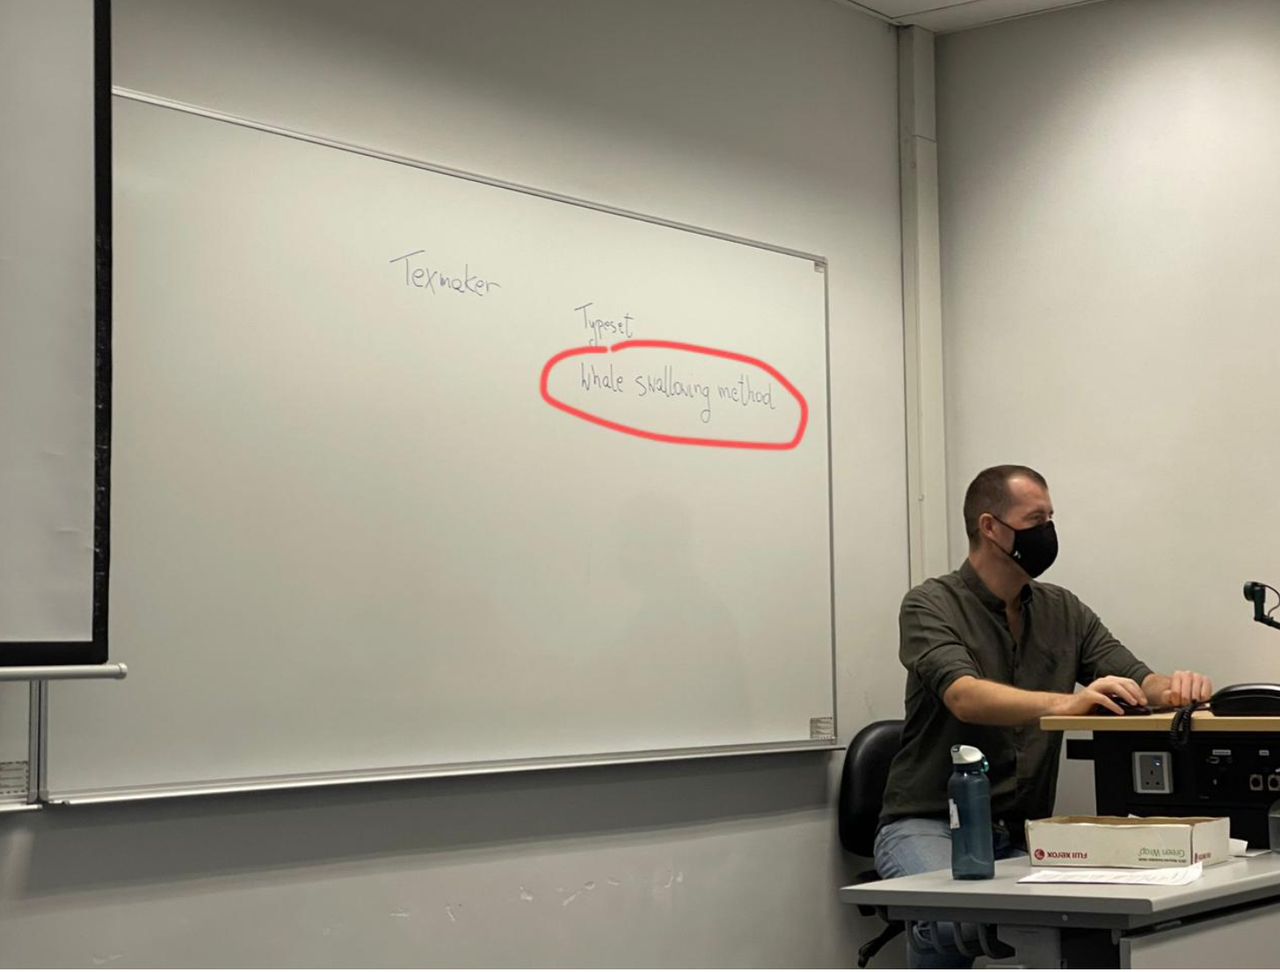 Texmaker
Typeset
Whale swallowing method
FUJI XEROX
Green Wrap